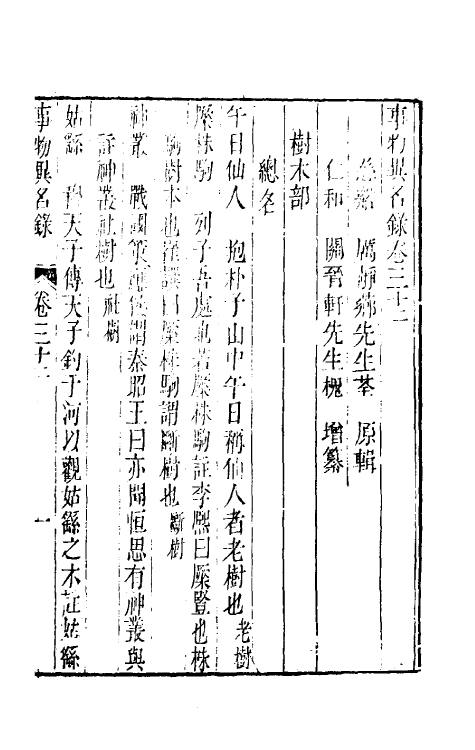 事物異名錄卷三十二
慈谿 厲靜薌先生荃 原輯
仁和 關晉軒先生槐 增纂
樹木部
總名
午日仙人 抱朴子山中午日稱仙人者老樹也 老樹
橜株駒 列子吾處也若橜株駒註李熙曰橜豎也株
駒樹本也崔譔曰橜株駒謂斷樹也 斷樹
神叢 戰國策應侯謂秦昭王曰亦聞恒思有神叢與
註神叢社樹也 社樹
姑繇 穆天子傳天子釣于河以觀姑繇之木註姑繇
事物異名錄 卷三十二 一